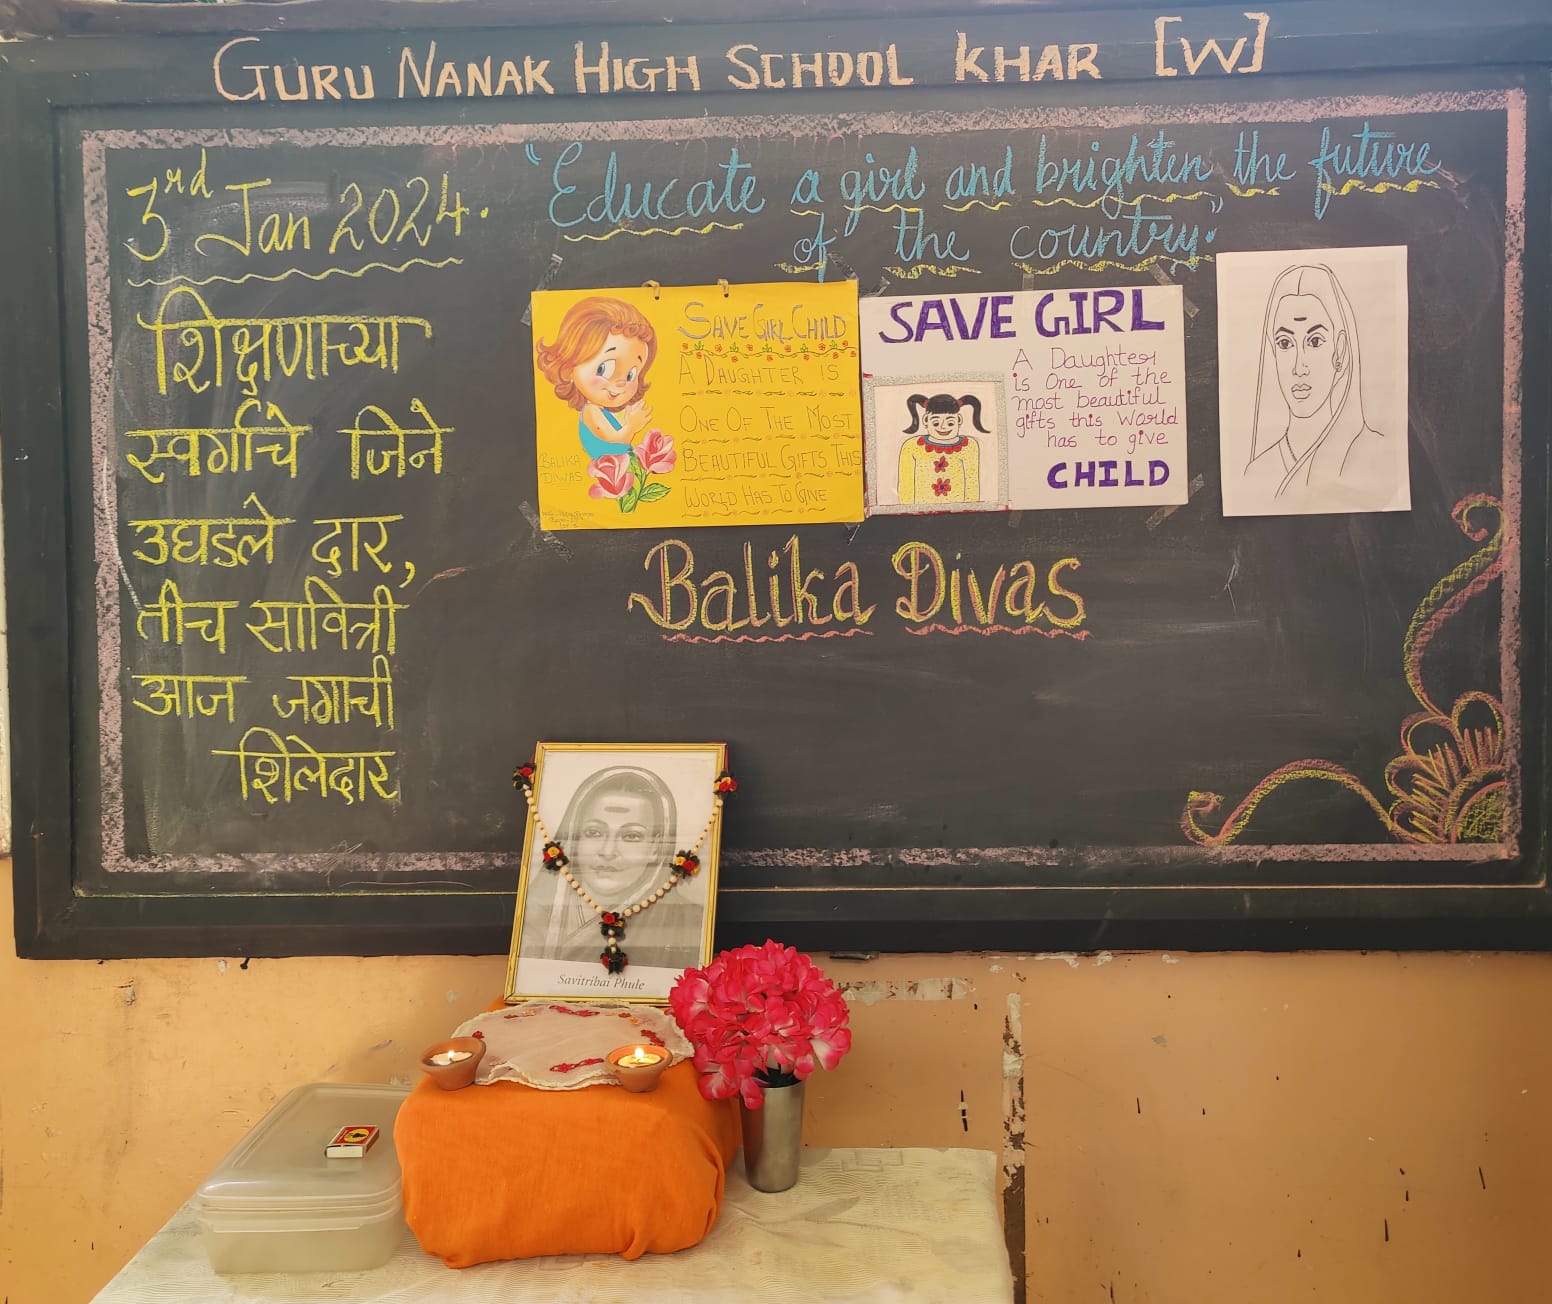 GURU NANAK HIGH SCHOOL KHAR [W]
3rd Jan 2024.
"Educate a girl and brighten the future
of the country."
शिक्षणाच्या
स्वर्गाचे जिने
उघडले दार,
तीच सावित्री
आज जगाची
शिलेदार
SAVE GIRL CHILD
A DAUGHTER IS
ONE OF THE MOST
BEAUTIFUL GIFTS THIS
WORLD HAS TO GIVE
BALIKA
DIWAS
SAVE GIRL
A Daughter
is One of the
most beautiful
gifts this World
has to give
CHILD
Balika Divas
Savitribai Phule